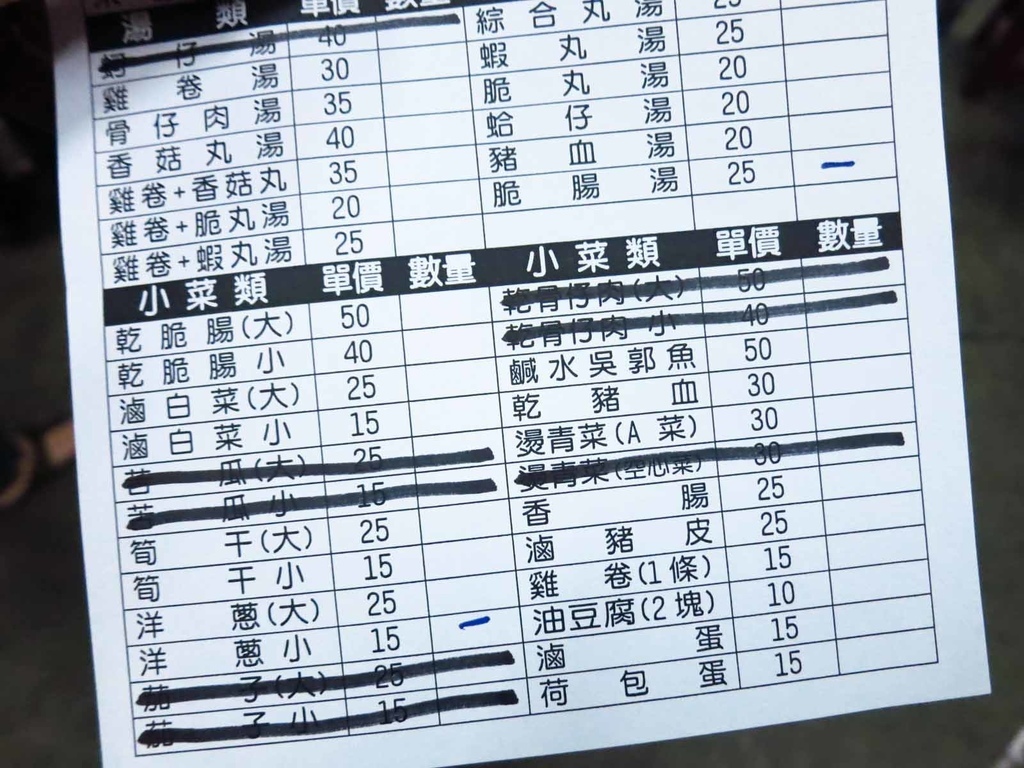 湯類 單價 數量
蚵仔湯 40 綜合丸湯 25
雞卷湯 30 蝦丸湯 25
骨仔肉湯 35 脆丸湯 20
香菇丸湯 40 蛤仔湯 20
雞卷+香菇丸 35 豬血湯 20
雞卷+脆丸湯 20 脆腸湯 25 一
雞卷+蝦丸湯 25
小菜類 單價 數量 小菜類 單價 數量
乾脆腸(大) 50 乾骨仔肉(大) 50
乾脆腸小 40 乾骨仔肉小 40
滷白菜(大) 25 鹹水吳郭魚 50
滷白菜小 15 乾豬血 30
苦瓜(大) 25 燙青菜(A菜) 30
苦瓜小 15 燙青菜(空心菜) 30
筍干(大) 25 香腸 25
筍干小 15 滷豬皮 25
洋蔥(大) 25 雞卷(1條) 15
洋蔥小 15 一 油豆腐(2塊) 10
茄子(大) 25 滷蛋 15
茄子小 15 荷包蛋 15